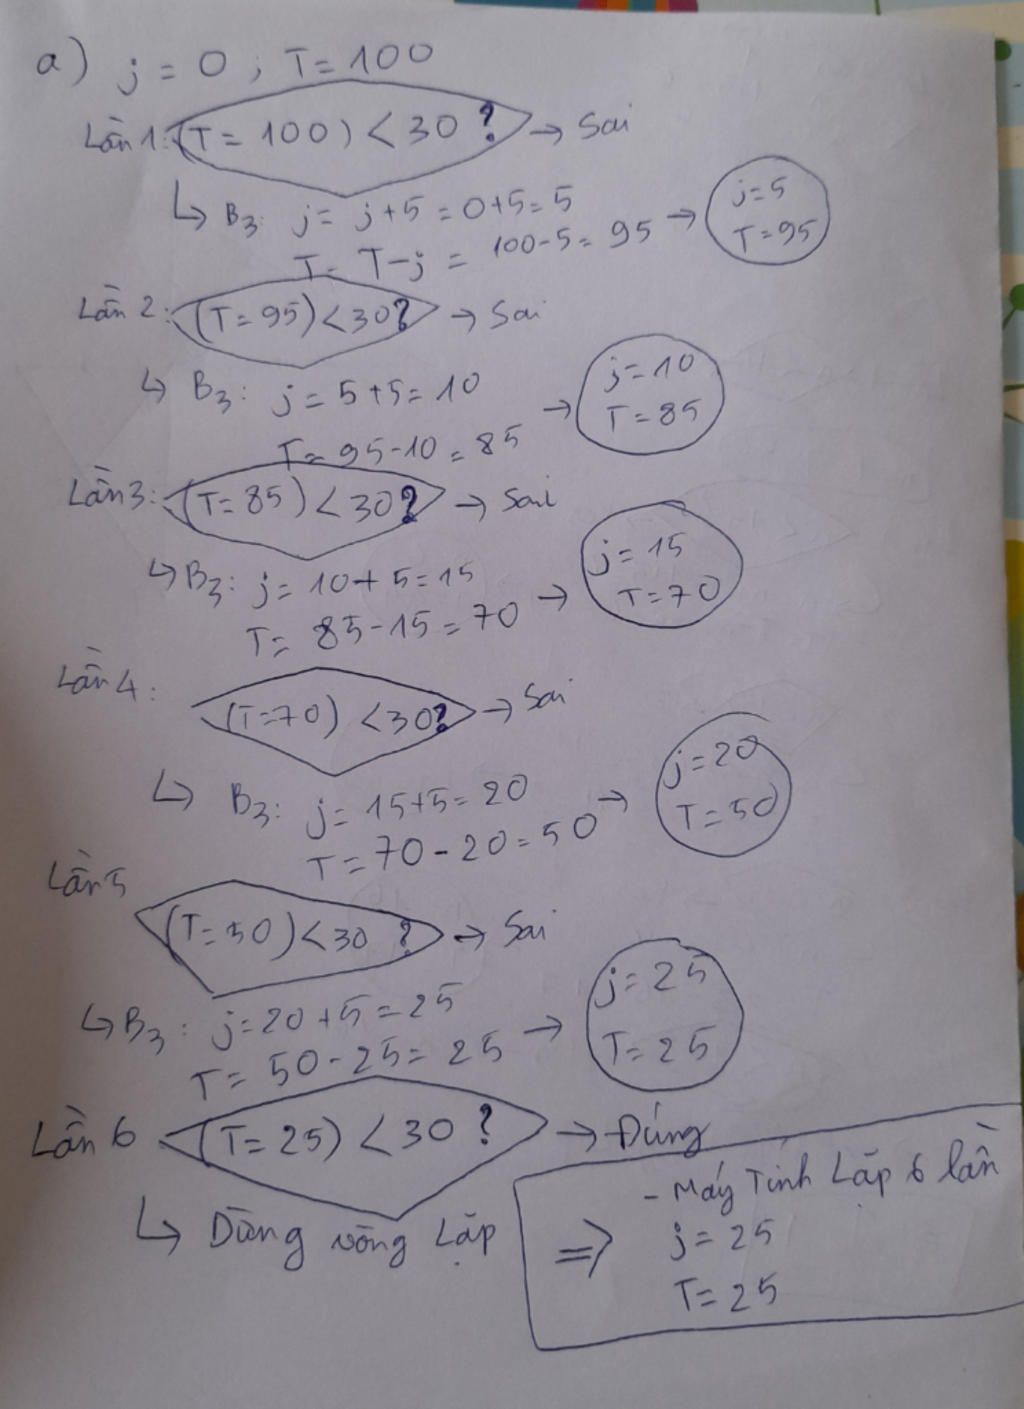 a) j = 0 ; T = 100
Lần 1: (T = 100) < 30 ? → Sai
↳ B3: j = j + 5 = 0 + 5 = 5
T = T - j = 100 - 5 = 95 → j = 5
T = 95
Lần 2: (T = 95) < 30 ? → Sai
↳ B3: j = 5 + 5 = 10
T = 95 - 10 = 85 → j = 10
T = 85
Lần 3: (T = 85) < 30 ? → Sai
↳ B3: j = 10 + 5 = 15
T = 85 - 15 = 70 → j = 15
T = 70
Lần 4: (T = 70) < 30 ? → Sai
↳ B3: j = 15 + 5 = 20
T = 70 - 20 = 50 → j = 20
T = 50
Lần 5 (T = 50) < 30 ? → Sai
↳ B3: j = 20 + 5 = 25
T = 50 - 25 = 25 → j = 25
T = 25
Lần 6 (T = 25) < 30 ? → Đúng
↳ Dừng vòng Lặp
⇒ - Máy Tính Lặp 6 lần
j = 25
T = 25